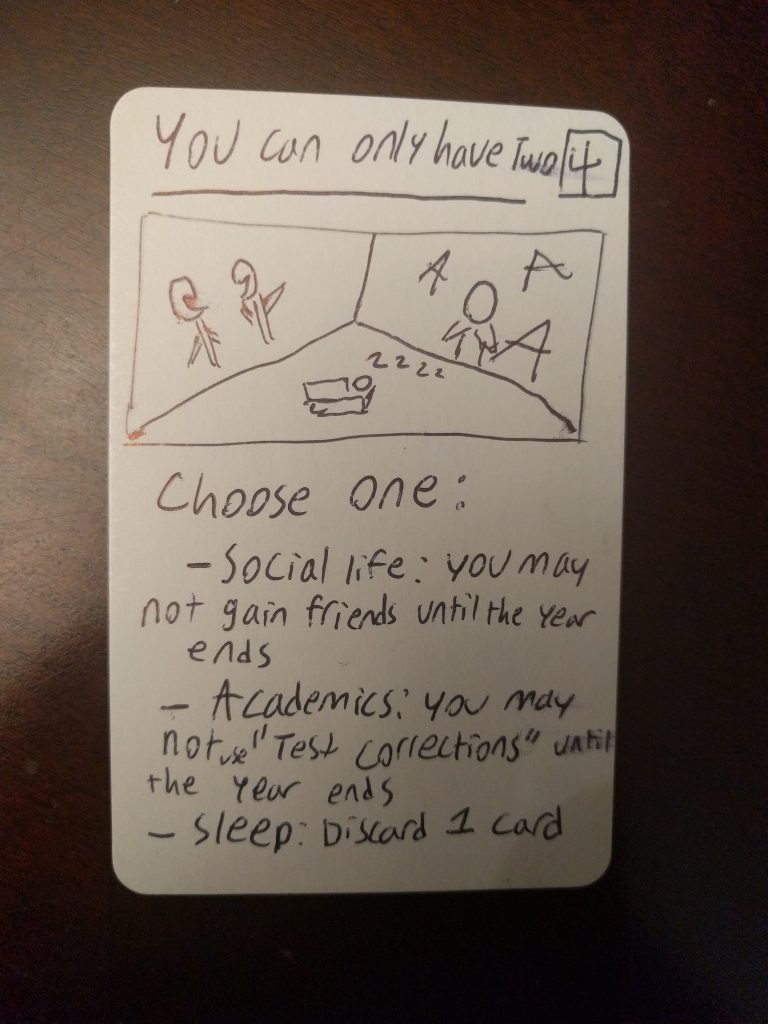 You can only have Two 4
A A
A
zzzz
Choose one:
- Social life: you may
not gain friends until the year
ends
- Academics: you may
not use "Test corrections" until
the year ends
- Sleep: Discard 1 card